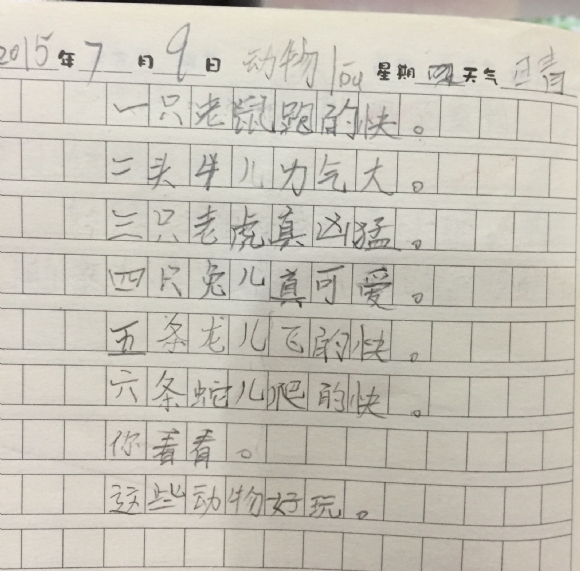 2015年7月9日 动物lou 星期四天气晴
一只老鼠跑的快。
二头牛儿力气大。
三只老虎真凶猛。
四只兔儿真可爱。
五条龙儿飞的快。
六条蛇儿爬的快。
你看看。
这些动物好玩。